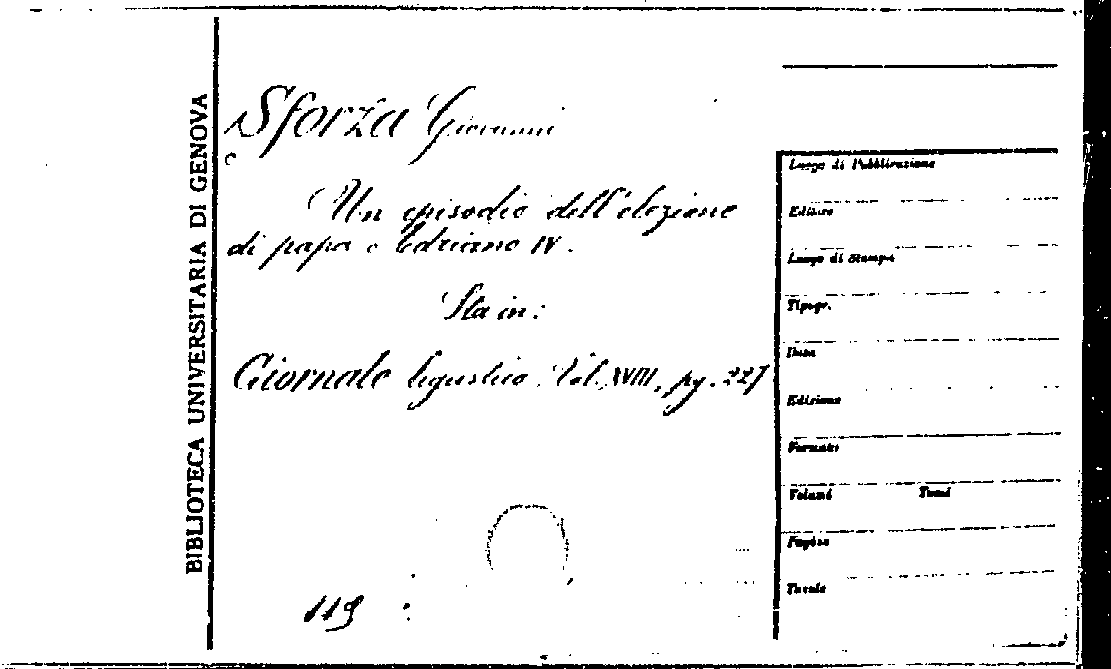 BIBLIOTECA UNIVERSITARIA DI GENOVA
Sforza Giovanni
Un episodio dell'elezione
di papa Adriano IV.
Sta in:
Giornale ligustico Vol. XVIII, pg. 227
119
Luogo di Pubblicazione
Editore
Luogo di Stampa
Tipogr.
Data
Edizione
Formato
Volumi Tomi
Pagine
Tavole